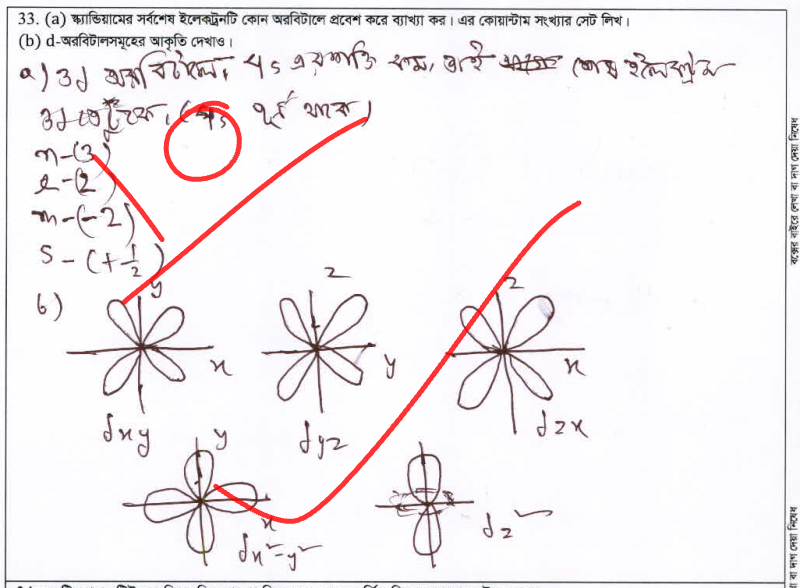 33. (a) স্ক্যান্ডিয়ামের সর্বশেষ ইলেকট্রনটি কোন অরবিটালে প্রবেশ করে ব্যাখ্যা কর। এর কোয়ান্টাম সংখ্যার সেট লিখ।
(b) d-অরবিটালসমূহের আকৃতি দেখাও।
a) 3d অরবিটালে, 4s এর শক্তি কম, তাই শেষ ইলেকট্রন
3d তে ঢুকে। (4s পূর্ণ থাকে)
n-(3)
l-(2)
m-(-2)
s-(+1/2)
b)
y z z
x y x
dxy dyz dzx
y
x
dx²-y² dz²
বক্সের বাইরে লেখা বা দাগ দেয়া নিষেধ
বা দাগ দেয়া নিষেধ